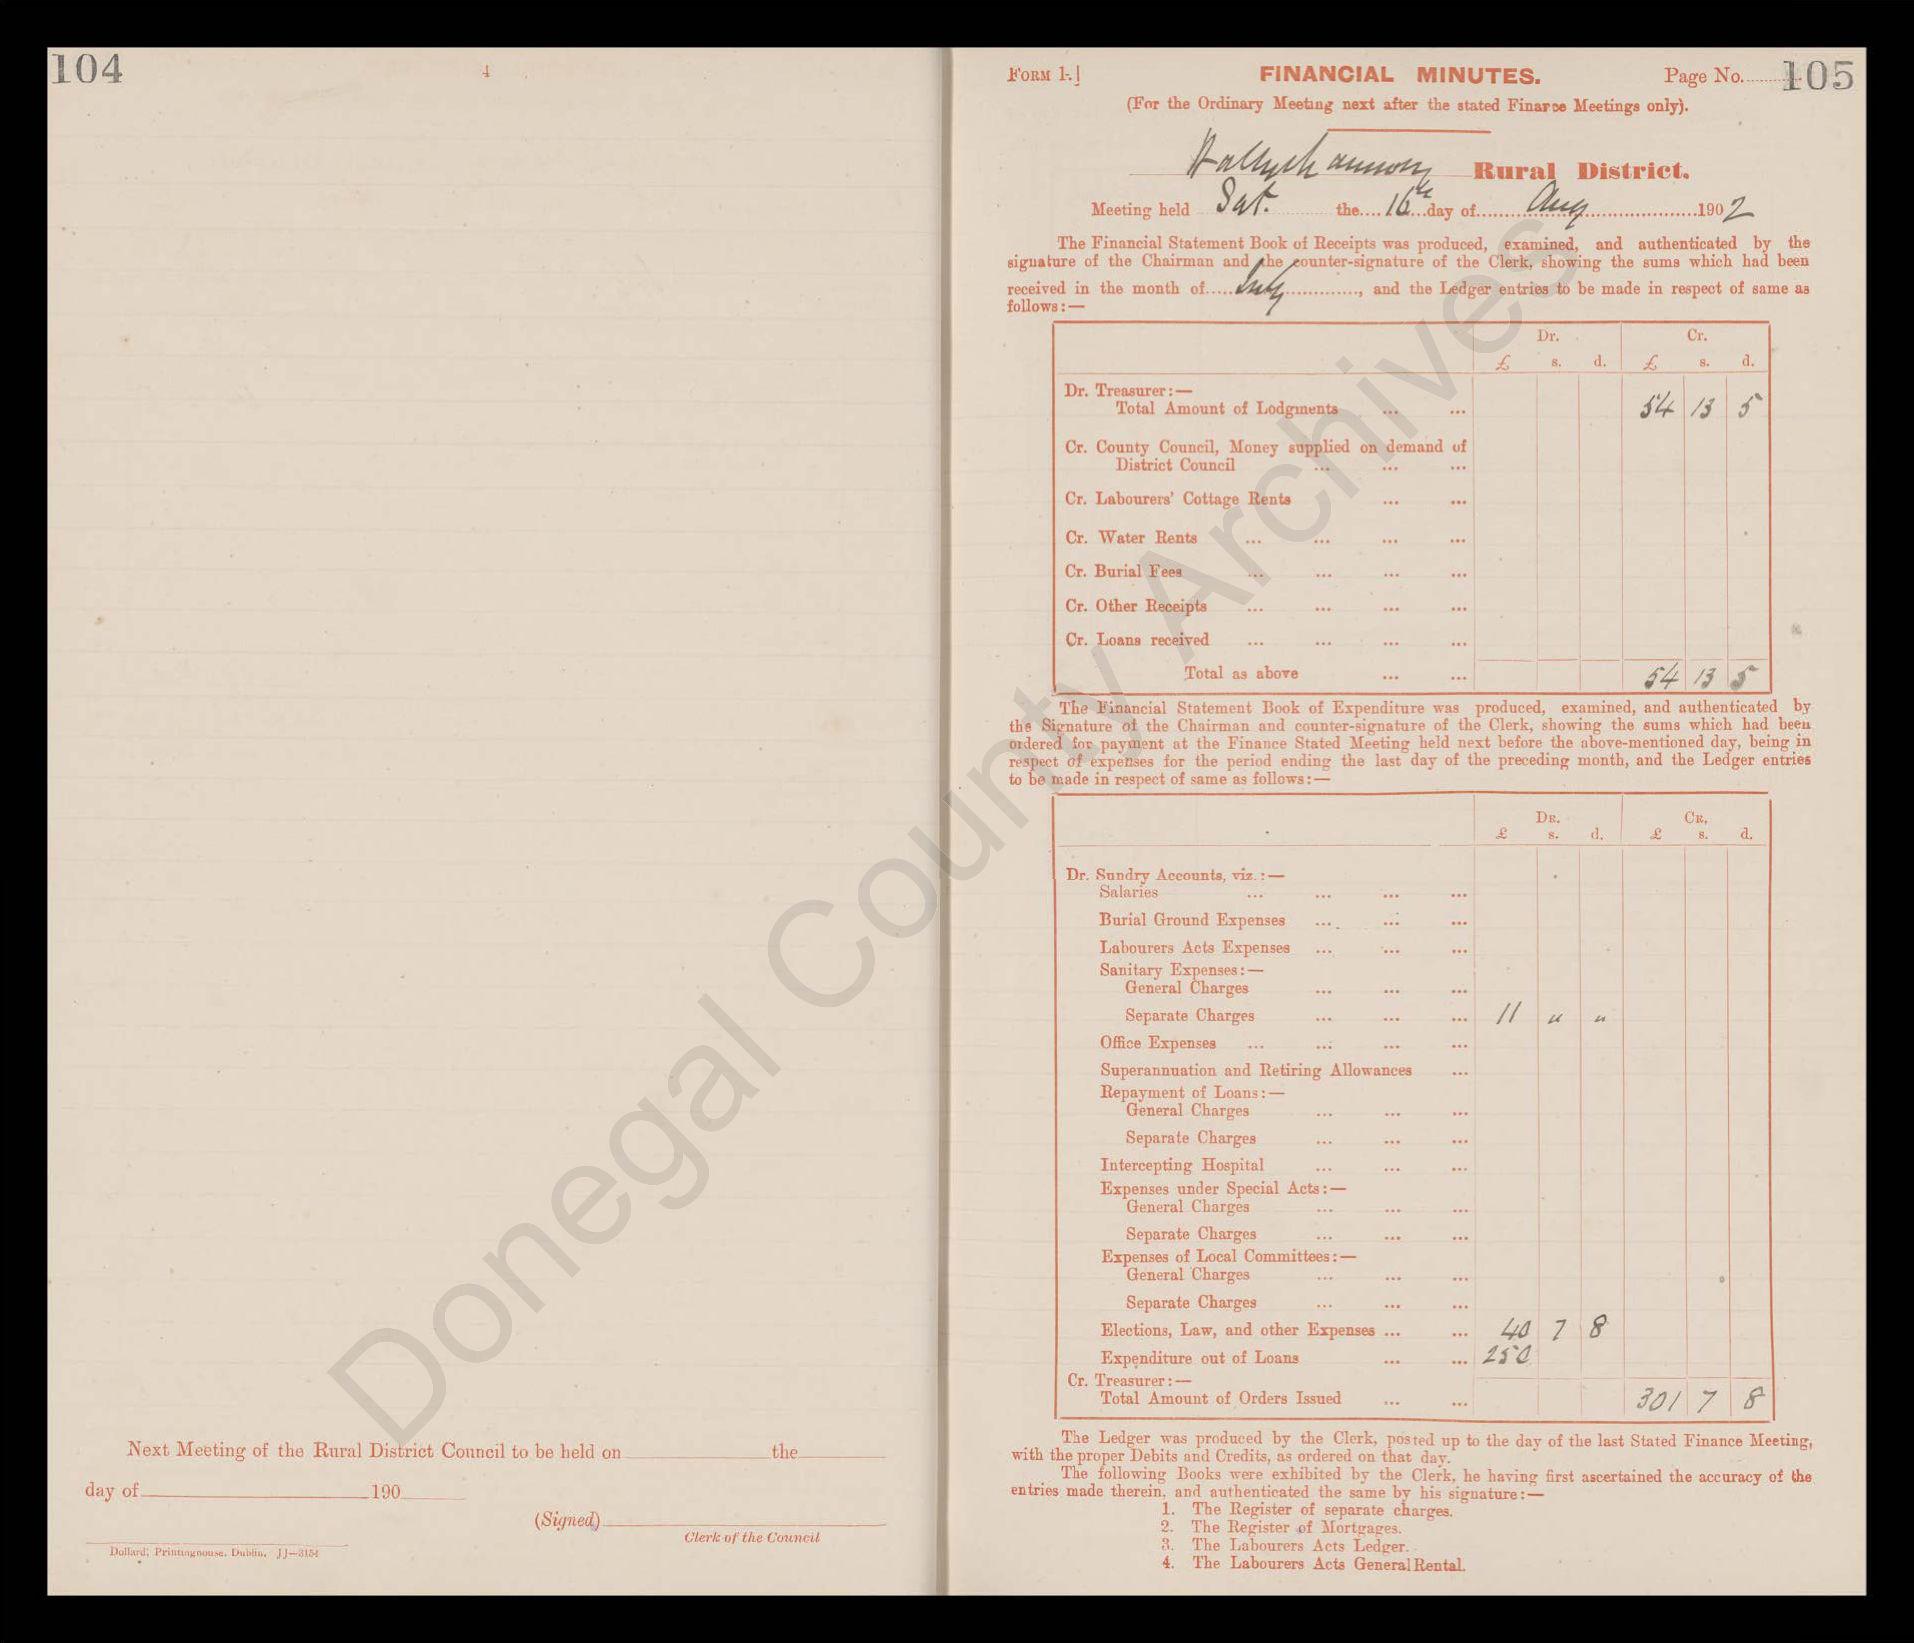 104
4
Next Meeting of the Rural District Council to be held on the
day of 190
(Signed)
Clerk of the Council
Dollard, Printinghouse, Dublin, JJ—3154
FORM 1.]
FINANCIAL MINUTES.
Page No. 105
(For the Ordinary Meeting next after the stated Finance Meetings only).
Ballyshannon Rural District.
Meeting held Sat. the 16th day of Aug 1902
The Financial Statement Book of Receipts was produced, examined, and authenticated by the
signature of the Chairman and the counter-signature of the Clerk, showing the sums which had been
received in the month of July, and the Ledger entries to be made in respect of same as
follows:—
Dr. Cr.
£ s. d. £ s. d.
Dr. Treasurer:—
Total Amount of Lodgments ... ... 54 13 5
Cr. County Council, Money supplied on demand of
District Council ... ... ...
Cr. Labourers' Cottage Rents ... ...
Cr. Water Rents ... ... ... ...
Cr. Burial Fees ... ... ... ...
Cr. Other Receipts ... ... ... ...
Cr. Loans received ... ... ... ...
Total as above ... ... 54 13 5
The Financial Statement Book of Expenditure was produced, examined, and authenticated by
the Signature of the Chairman and counter-signature of the Clerk, showing the sums which had been
ordered for payment at the Finance Stated Meeting held next before the above-mentioned day, being in
respect of expenses for the period ending the last day of the preceding month, and the Ledger entries
to be made in respect of same as follows:—
DR. CR.
£ s. d. £ s. d.
Dr. Sundry Accounts, viz.:—
Salaries ... ... ... ...
Burial Ground Expenses ... ... ...
Labourers Acts Expenses ... ... ...
Sanitary Expenses:—
General Charges ... ... ...
Separate Charges ... ... ... 11 " "
Office Expenses ... ... ... ...
Superannuation and Retiring Allowances ...
Repayment of Loans:—
General Charges ... ... ...
Separate Charges ... ... ...
Intercepting Hospital ... ... ...
Expenses under Special Acts:—
General Charges ... ... ...
Separate Charges ... ... ...
Expenses of Local Committees:—
General Charges ... ... ...
Separate Charges ... ... ...
Elections, Law, and other Expenses ... ... 40 7 8
Expenditure out of Loans ... ... 250
Cr. Treasurer:—
Total Amount of Orders Issued ... ... 301 7 8
The Ledger was produced by the Clerk, posted up to the day of the last Stated Finance Meeting,
with the proper Debits and Credits, as ordered on that day.
The following Books were exhibited by the Clerk, he having first ascertained the accuracy of the
entries made therein, and authenticated the same by his signature:—
1. The Register of separate charges.
2. The Register of Mortgages.
3. The Labourers Acts Ledger.
4. The Labourers Acts General Rental.
Donegal County Archives